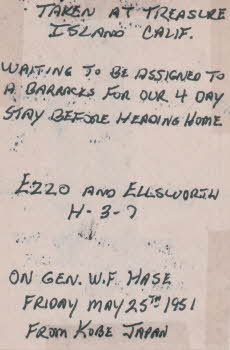 TAKEN AT TREASURE
ISLAND CALIF.
WAITING TO BE ASSIGNED TO
A BARRACKS FOR OUR 4 DAY
STAY BEFORE HEADING HOME
EZZO AND ELLSWORTH
H-3-7
ON GEN. W.F. HASE
FRIDAY MAY 25TH 1951
FROM KOBE JAPAN